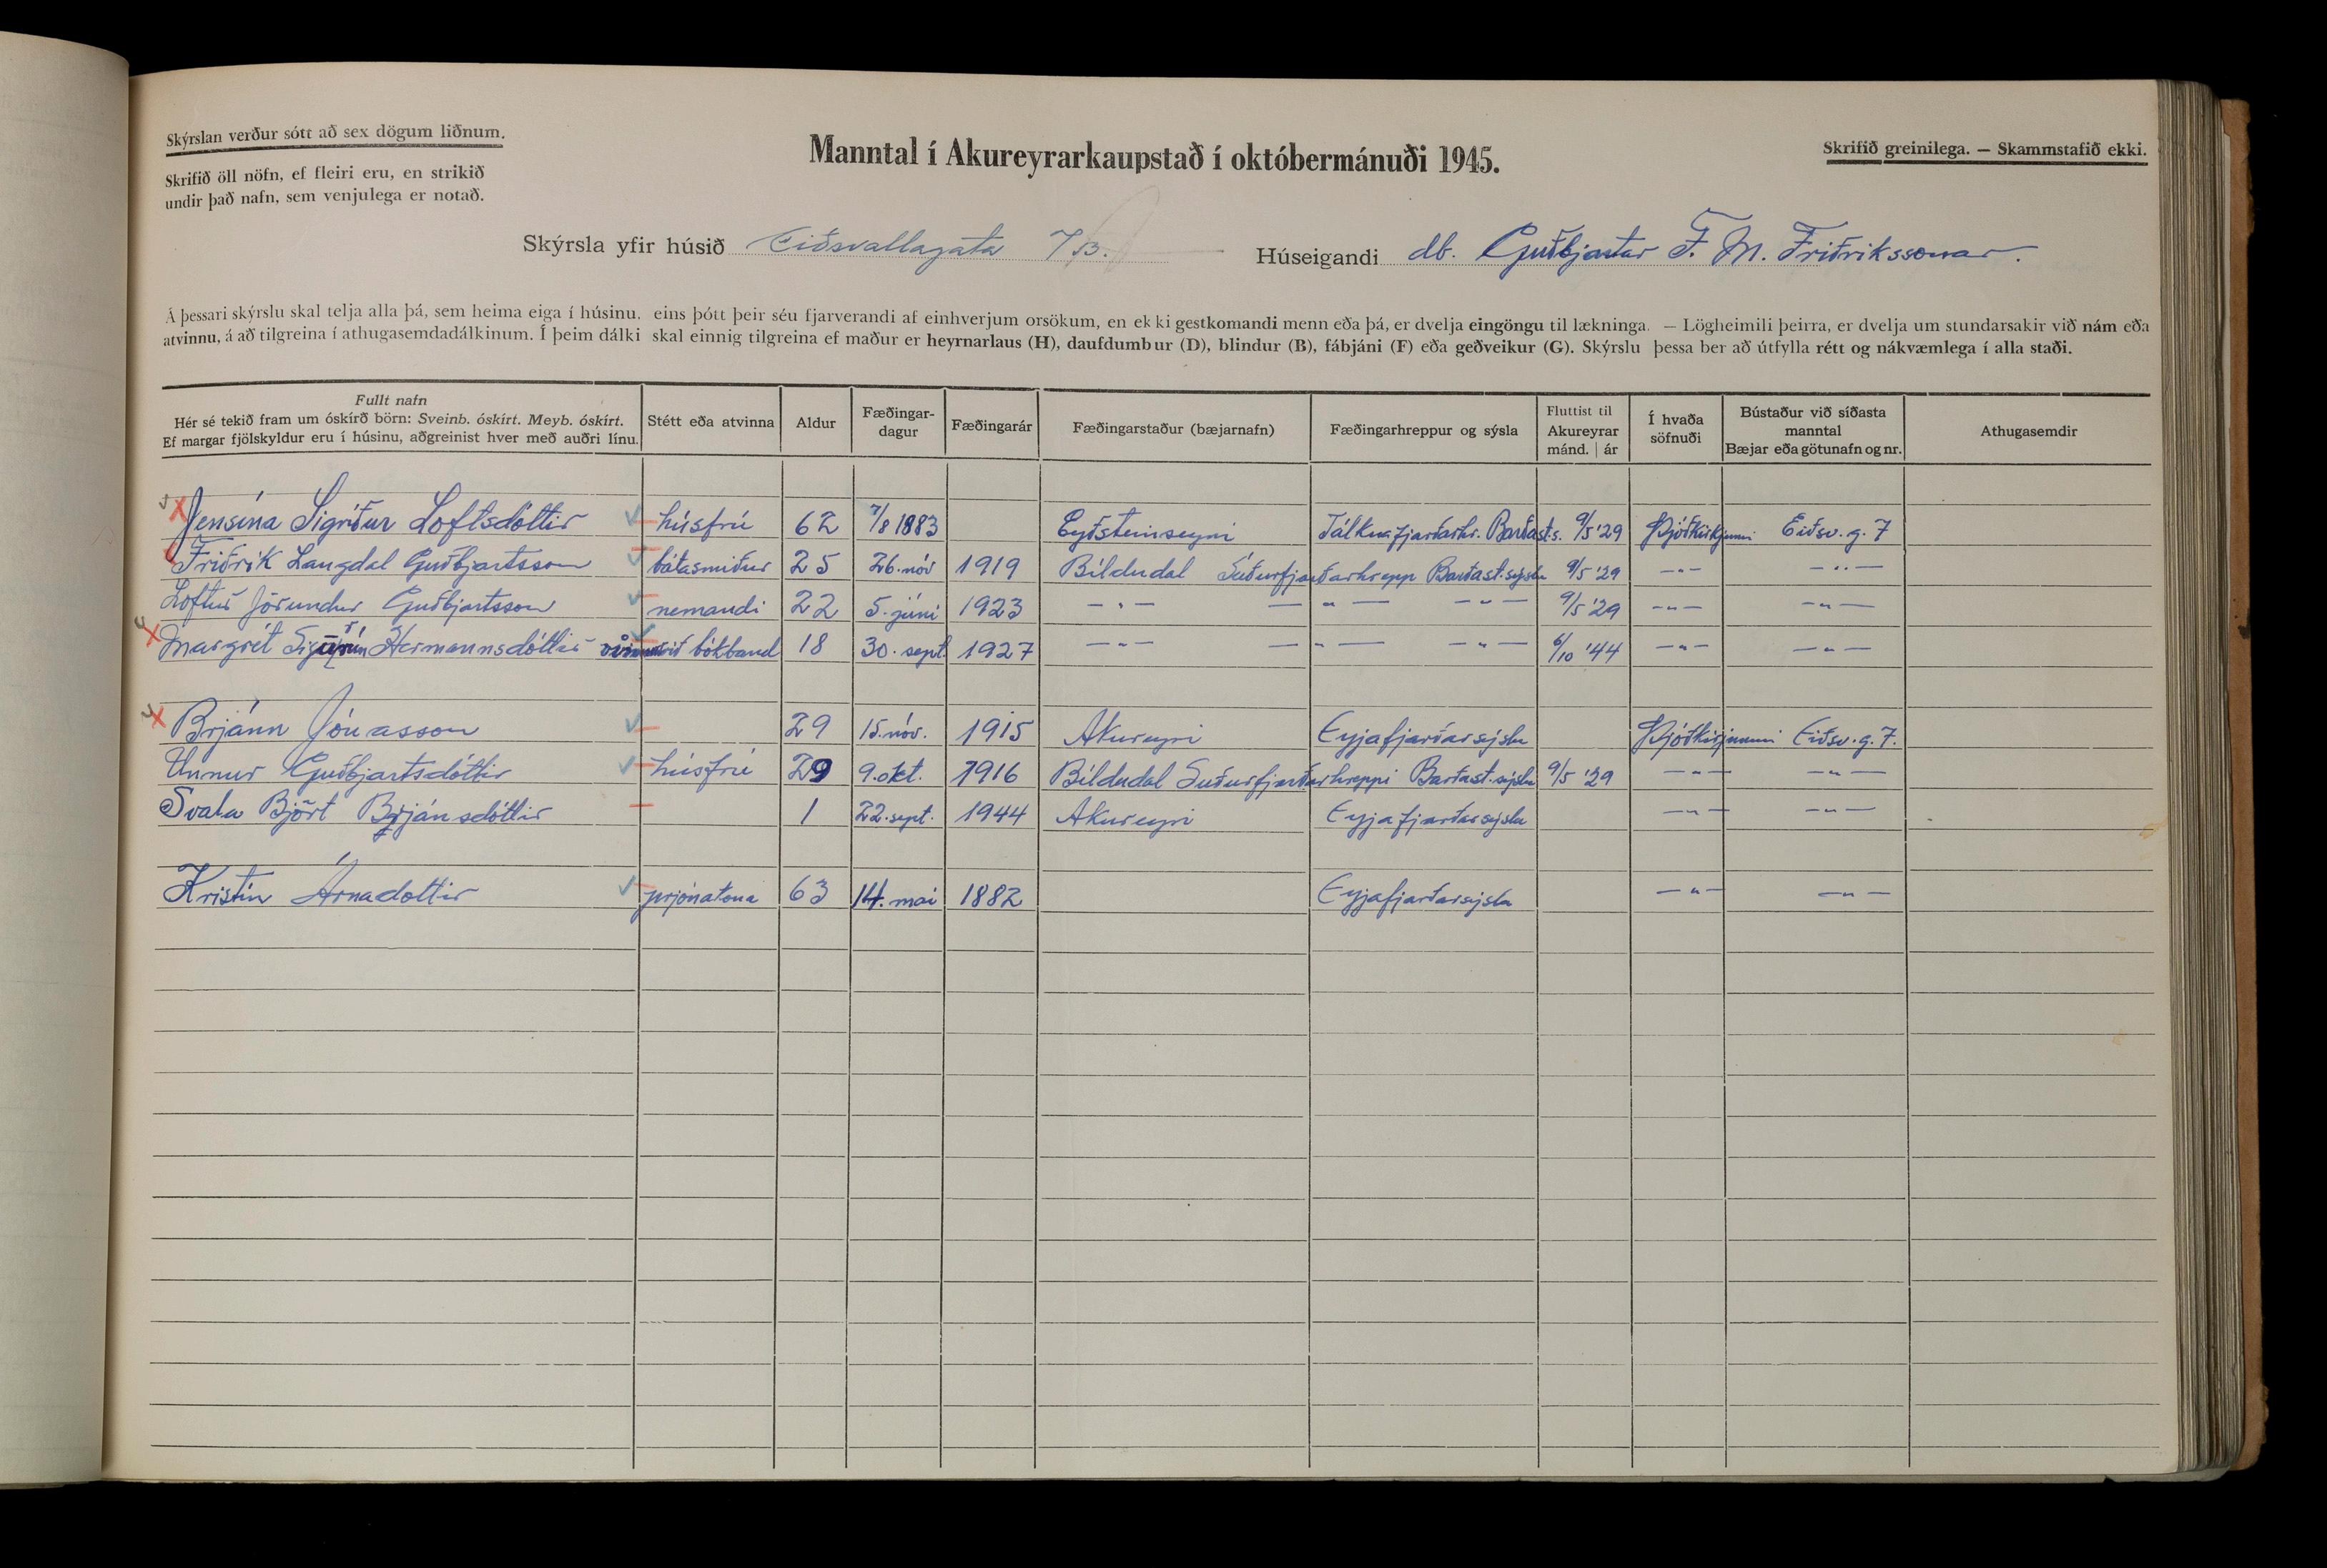 Skýrslan verður sótt að sex dögum liðnum.
Skrifið öll nöfn, ef fleiri eru, en strikið
undir það nafn, sem venjulega er notað.
Manntal í Akureyrarkaupstað í októbermánuði 1945.
Skrifið greinilega. — Skammstafið ekki.
Skýrsla yfir húsið Eiðsvallagata 7B. Húseigandi db. Guðbjartar F. M. Friðrikssonar.
Á þessari skýrslu skal telja alla þá, sem heima eiga í húsinu, eins þótt þeir séu fjarverandi af einhverjum orsökum, en ekki gestkomandi menn eða þá, er dvelja eingöngu til lækninga. — Lögheimili þeirra, er dvelja um stundarsakir við nám eða
atvinnu, á að tilgreina í athugasemdadálkinum. Í þeim dálki skal einnig tilgreina ef maður er heyrnarlaus (H), daufdumbur (D), blindur (B), fábjáni (F) eða geðveikur (G). Skýrslu þessa ber að útfylla rétt og nákvæmlega í alla staði.
Fullt nafn
Hér sé tekið fram um óskírð börn: Sveinb. óskírt. Meyb. óskírt.
Ef margar fjölskyldur eru í húsinu, aðgreinist hver með auðri línu.
Stétt eða atvinna
Aldur
Fæðingar-
dagur
Fæðingarár
Fæðingarstaður (bæjarnafn)
Fæðingarhreppur og sýsla
Fluttist til
Akureyrar
mánd. | ár
Í hvaða
söfnuði
Bústaður við síðasta
manntal
Bæjar eða götunafn og nr.
Athugasemdir
Jensína Sigríður Loftsdóttir húsfrú 62 7/8 1883 Eyðsteinseyri Tálknafjarðarhr. Barðast.s. 9/5 '29 Þjóðkirkjunni Eiðsv.g. 7
Friðrik Langdal Guðbjartsson bátasmiður 25 26. nóv 1919 Bíldudal Suðurfjarðarhrepp Barðast.sýslu 9/5 '29 —"— —"—
Loftur Jörundur Guðbjartsson nemandi 22 5. júní 1923 —"— —"— —"— 9/5 '29 —"— —"—
Margrét Sigrún Hermannsdóttir við bókband 18 30. sept. 1927 —"— —"— —"— 6/10 '44 —"— —"—
Brjánn Jónasson 29 15. nóv. 1915 Akureyri Eyjafjarðarsýslu Þjóðkirjunni Eiðsv.g. 7.
Unnur Guðbjartsdóttir húsfrú 29 9. okt. 1916 Bíldudal Suðurfjarðarhreppi Barðast.sýslu 9/5 '29 —"— —"—
Svala Björt Brjánsdóttir 1 22. sept. 1944 Akureyri Eyjafjarðarsýslu —"— —"—
Kristín Árnadóttir prjónakona 63 14. maí 1882 Eyjafjarðarsýslu —"— —"—